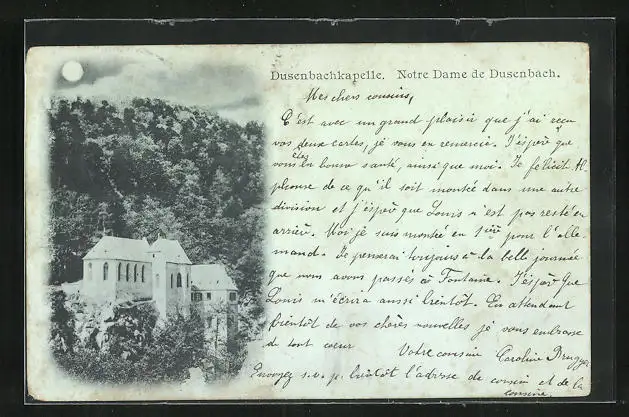 Dusenbachkapelle. Notre Dame de Dusenbach.
Mes chers cousins,
C'est avec un grand plaisir que j'ai reçu
vos deux cartes, je vous en remercie. J'éspère que
vous êtes en bonne santé, ainsi que moi. Je félicit Al
phonse de ce qu'il soit montée dans une autre
division et j'éspère que Louis n'est pas resté en
arrière. Moi je suis montée en 1ière pour l'alle-
mand. Je penserai toujours à la belle journée
que nous avons passés à Fontaine. J'éspère que
Louis m'écrira aussi bientôt. En attendant
bientôt de vos chères nouvelles je vous embrasse
de tout coeur Votre cousine Caroline
Envoyez s.v.p. bientôt l'adresse du cousin et de la
cousine.